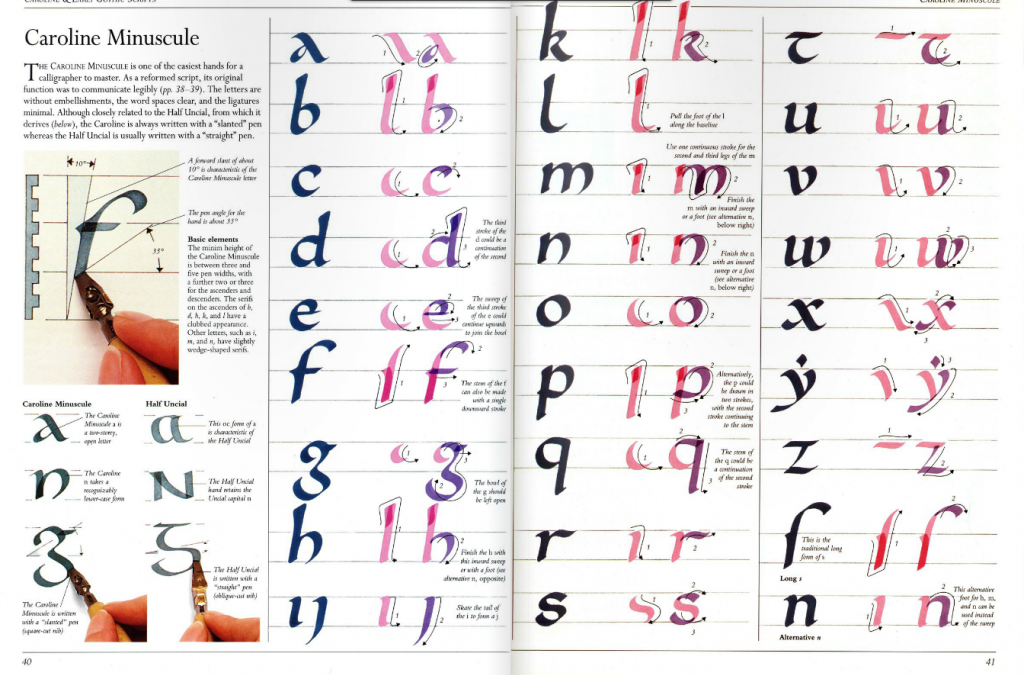 CAROLINE & EARLY GOTHIC SCRIPTS
CAROLINE MINUSCULE
Caroline Minuscule
THE CAROLINE MINUSCULE is one of the easiest hands for a
calligrapher to master. As a reformed script, its original
function was to communicate legibly (pp. 38–39). The letters are
without embellishments, the word spaces clear, and the ligatures
minimal. Although closely related to the Half Uncial, from which it
derives (below), the Caroline is always written with a "slanted" pen
whereas the Half Uncial is usually written with a "straight" pen.
10°
A forward slant of about
10° is characteristic of the
Caroline Minuscule letter
The pen angle for the
hand is about 35°
35°
Basic elements
The minim height of
the Caroline Minuscule
is between three and
five pen widths, with
a further two or three
for the ascenders and
descenders. The serifs
on the ascenders of b,
d, h, k, and l have a
clubbed appearance.
Other letters, such as i,
m, and n, have slightly
wedge-shaped serifs.
Caroline Minuscule
a
The Caroline
Minuscule a is
a two-storey,
open letter
n
The Caroline
n takes a
recognizably
lower-case form
g
The Caroline
Minuscule is written
with a "slanted" pen
(square-cut nib)
Half Uncial
a
This oc form of a
is characteristic of
the Half Uncial
N
The Half Uncial
hand retains the
Uncial capital n
The Half Uncial
is written with a
"straight" pen
(oblique-cut nib)
40
a 1 a 2
b 1 b 2
c 1 c 2
d d 2 3
The third
stroke of the
d could be a
continuation
of the second
e e 2 3
The sweep of
the third stroke
of the e could
continue upwards
to join the bowl
f 1 f 2 3
The stem of the f
can also be made
with a single
downward stroke
g 1 g 2 3
The bowl of
the g should
be left open
h 1 h 2
Finish the h with
this inward sweep
or with a foot (see
alternative n, opposite)
ij 1 j 2
Skate the tail of
the i to form a j
k 1 k 2
l 1
Pull the foot of the l
along the baseline
Use one continuous stroke for the
second and third legs of the m
m 1 m 2
Finish the
m with an inward sweep
or a foot (see alternative n,
below right)
n 1 n 2
Finish the n
with an inward
sweep or a foot
(see alternative
n, below right)
o 1 o 2
p 1 p 2 3
Alternatively,
the p could
be drawn in
two strokes,
with the second
stroke continuing
to the stem
q 1 q 2 3
The stem of
the q could be
a continuation
of the second
stroke
r 1 r 2
s 1 s 2 3
t 1 t 2
u 1 u 2
v 1 v 2
w 1 w 2 3
x 1 x 2 3
ẏ 1 ẏ 2 3
z 1 z 2
ſ 1 ſ 2
This is the
traditional long
form of s
Long s
n 1 n 2
This alternative
foot for h, m,
and n can be
used instead
of the sweep
Alternative n
41